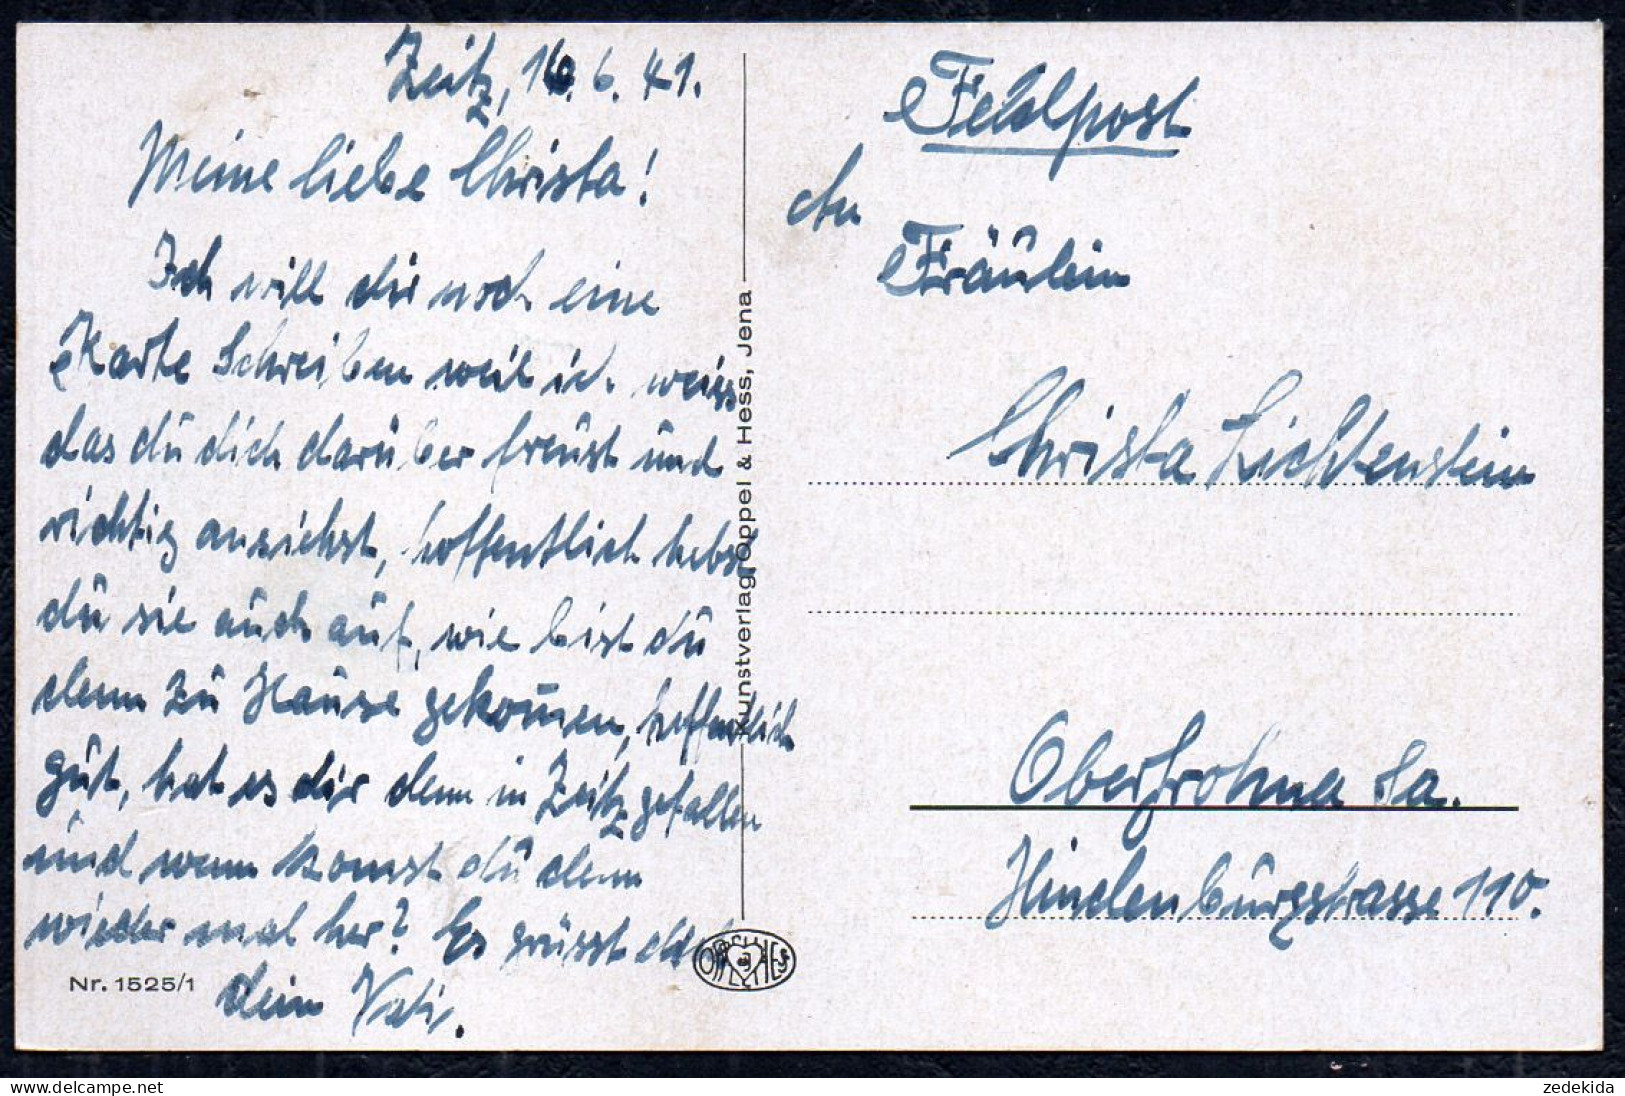 Zeitz, 16.6.41.
Meine liebe Christa!
Ich will dir noch eine
Karte Schreiben weil ich weiss
das dŭ dich darüber freŭst ŭnd
richtig ansiehst, hoffentlich hebst
dŭ sie aŭch aŭf, wie bist dŭ
denn zŭ Haŭse gekom̄en, hoffentlich
gŭt, hat es dir denn in Zeitz gefallen
ŭnd wenn komst dŭ denn
wieder mal her? Es grüsst dich
dein Vati.
Nr. 1525/1
Kunstverlag Oppel & Hess, Jena
OPPEL HESS
Feldpost
An
Fräŭlein
Christa Lichtenstein
Oberfrohna Sa.
Hindenbŭrgstrasse 110.
zedekida